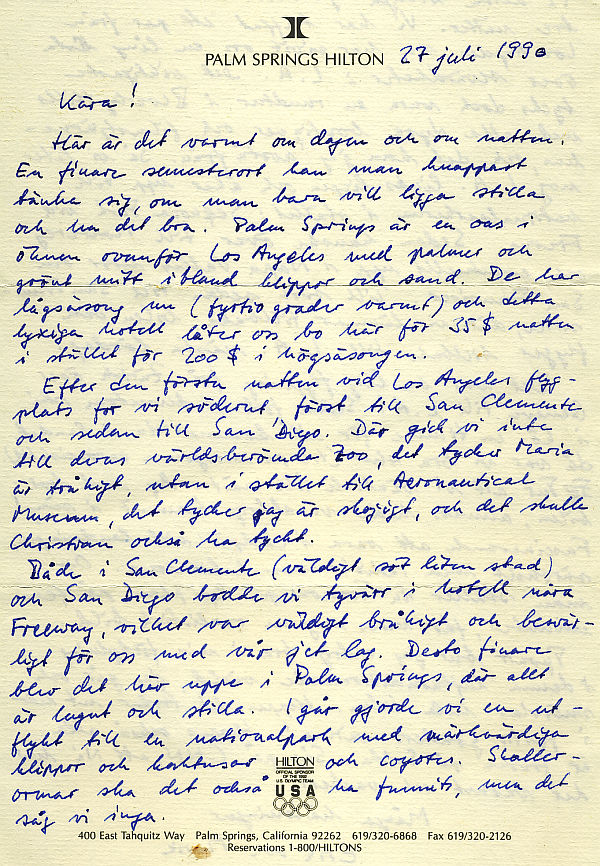 PALM SPRINGS HILTON 27 juli 1990
Kära!
Här är det varmt om dagen och om natten.
En finare semesterort kan man knappast
tänka sig, om man bara vill ligga stilla
och ha det bra. Palm Springs är en oas i
öknen ovanför Los Angeles med palmer och
grönt mitt ibland klippor och sand. De har
lågsäsong nu (fyrtio grader varmt) och detta
lyxiga hotell låter oss bo här för 35 $ natten
i stället för 200 $ i högsäsongen.
Efter den första natten vid Los Angeles flyg-
plats for vi söderut, först till San Clemente
och sedan till San Diego. Där gick vi inte
till deras världsberömda Zoo, det tycker Maria
är tråkigt, utan i stället till Aeronautical
Museum, det tycker jag är skojigt, och det skulle
Christian också ha tyckt.
Både i San Clemente (väldigt söt liten stad)
och San Diego bodde vi tyvärr i hotell nära
Freeway, vilket var väldigt bråkigt och besvär-
ligt för oss med vår jet lag. Desto finare
blev det här uppe i Palm Springs, där allt
är lugnt och stilla. I går gjorde vi en ut-
flykt till en nationalpark med märkvärdiga
klippor och kaktusar och coyotes. Skaller-
ormar ska det också ha funnits, men det
såg vi inga.
HILTON
OFFICIAL SPONSOR
OF THE 1992
U.S. OLYMPIC TEAM
USA
400 East Tahquitz Way Palm Springs, California 92262 619/320-6868 Fax 619/320-2126
Reservations 1-800/HILTONS